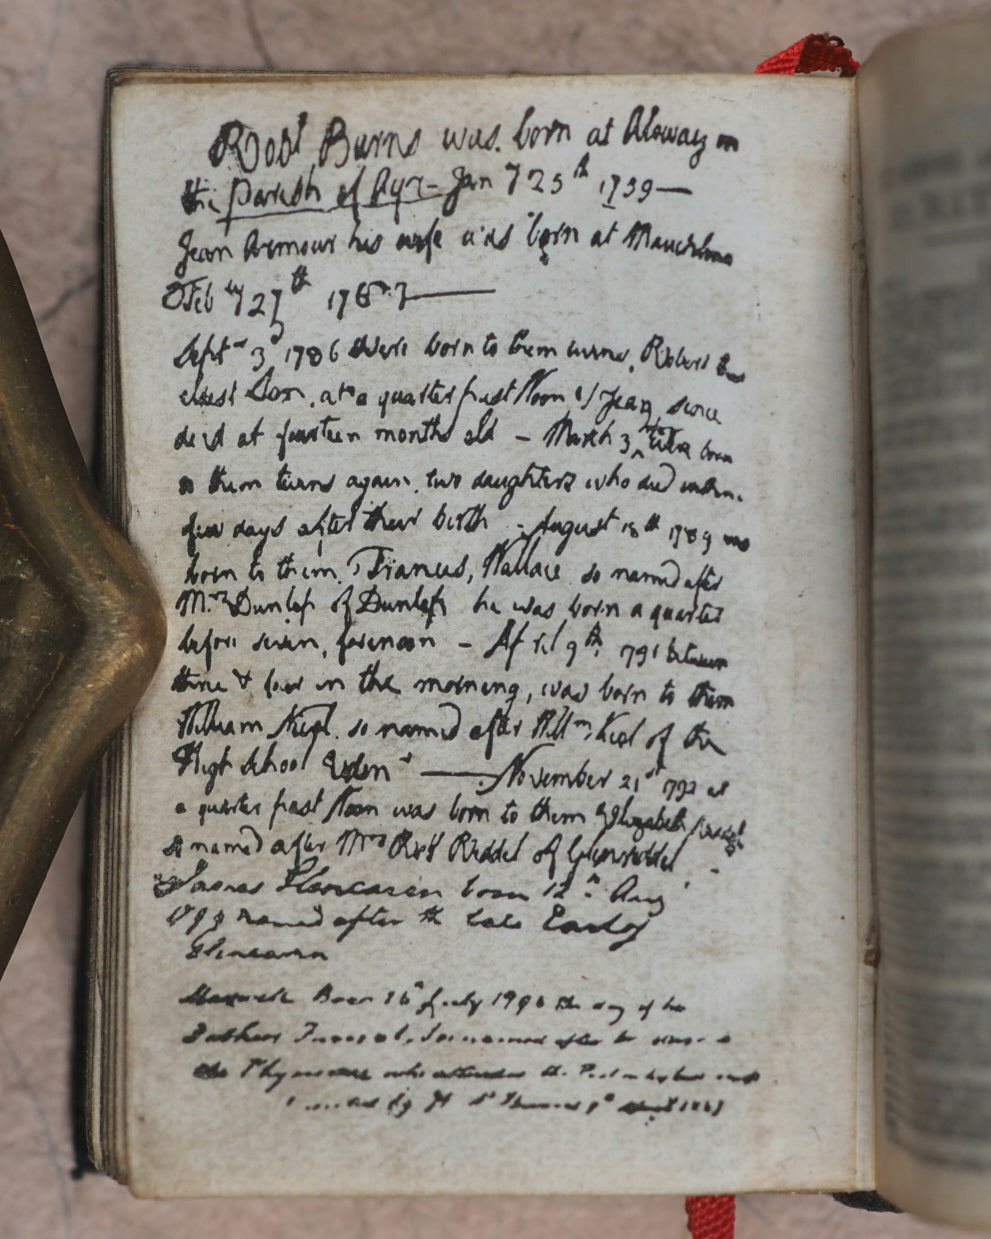 Robt Burns was born at Aloway in
the Parish of Ayr - Jany 25th 1759 —
Jean Armour his wife was born at Mauchline
Feby 27th 176
Septr 3d 1786 were born to them twins, Robert
eldest Son, at a quarter past Noon & Jean, since
dead at fourteen months old - March 3, were born
to them twins again, two daughters who died within
few days after their birth - August 18th 1789 was
born to them, Francis, Wallace so named after
Mrs Dunlop of Dunlop he was born a quarter
before seven, forenoon - April 9th, 1791 between
three & four in the morning, was born to them
William Nicol, so named after Willm Nicol of the
High School Edenr — November 21st 1792 at
a quarter past Noon was born to them Elizabeth Riddel
so named after Mrs Robt Riddel of Glenriddel
James Glencairn born 12th Aug
named after the late Earl of
Glencairn
Maxwell Born 26th July 1796 the day of his
Fathers Funeral, So named after Dr
the Physician who attended the Poet
by